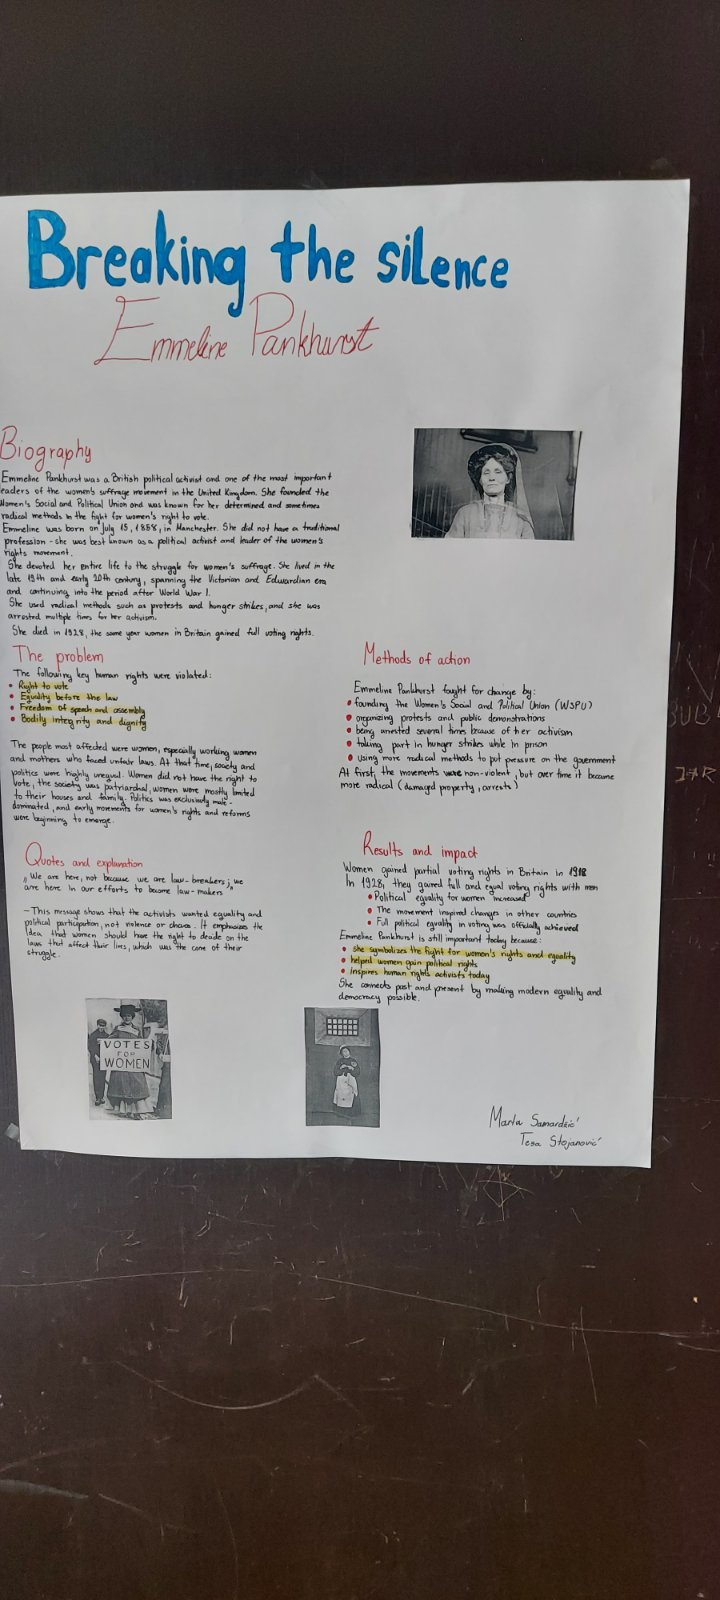 Breaking the silence
Emmeline Pankhurst
Biography
Emmeline Pankhurst was a British political activist and one of the most important
leaders of the women's suffrage movement in the United Kingdom. She founded the
Women's Social and Political Union and was known for her determined and sometimes
radical methods in the fight for women's right to vote.
Emmeline was born on July 15, 1858, in Manchester. She did not have a traditional
profession - she was best known as a political activist and leader of the women's
rights movement.
She devoted her entire life to the struggle for women's suffrage. She lived in the
late 19th and early 20th century, spanning the Victorian and Edwardian era
and continuing into the period after World War I.
She used radical methods such as protests and hunger strikes, and she was
arrested multiple times for her activism.
She died in 1928, the same year women in Britain gained full voting rights.
The problem
The following key human rights were violated:
• Right to vote
• Equality before the law
• Freedom of speech and assembly
• Bodily integrity and dignity
The people most affected were women, especially working women
and mothers who faced unfair laws. At that time, society and
politics were highly unequal. Women did not have the right to
vote, the society was patriarchal, women were mostly limited
to their houses and family. Politics was exclusively male-
dominated, and early movements for women's rights and reforms
were beginning to emerge.
Quotes and explanation
„We are here, not because we are law-breakers; we
are here in our efforts to become law-makers„
- This message shows that the activists wanted equality and
political participation, not violence or chaos. It emphasizes the
idea that women should have the right to decide on the
laws that affect their lives, which was the core of their
struggle.
Methods of action
Emmeline Pankhurst fought for change by:
• founding the Women's Social and Political Union (WSPU)
• organizing protests and public demonstrations
• being arrested several times because of her activism
• taking part in hunger strikes while in prison
• using more radical methods to put pressure on the government
At first, the movements were non-violent, but over time it became
more radical (damaged property, arrests)
Results and impact
Women gained partial voting rights in Britain in 1918
In 1928, they gained full and equal voting rights with men
• Political equality for women increased
• The movement inspired changes in other countries
• Full political equality in voting was officially achieved
Emmeline Pankhurst is still important today because:
• she symbolizes the fight for women's rights and equality
• helped women gain political rights
• inspires human rights activists today
She connects past and present by making modern equality and
democracy possible.
VOTES
FOR
WOMEN
Marta Samardžić
Tesa Stojanović